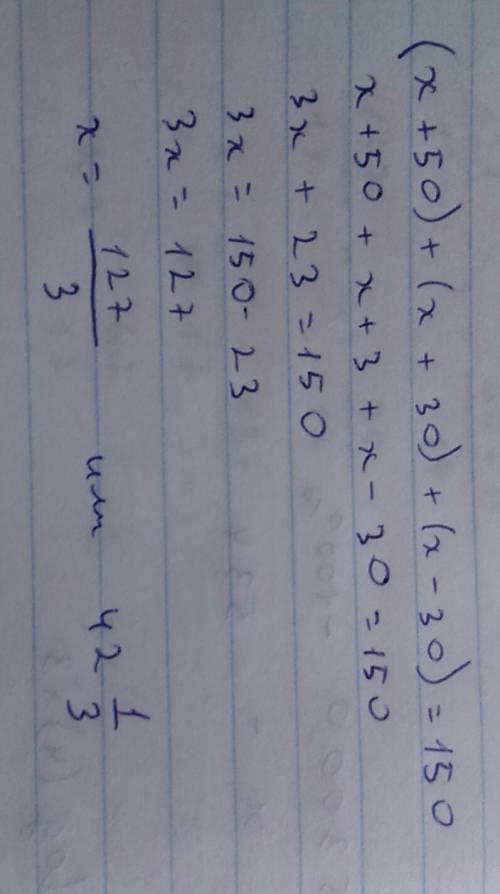 (x + 50) + (x + 30) + (x - 30) = 150
x + 50 + x + 3 + x - 30 = 150
3x + 23 = 150
3x = 150 - 23
3x = 127
x = 127/3 или 42 1/3